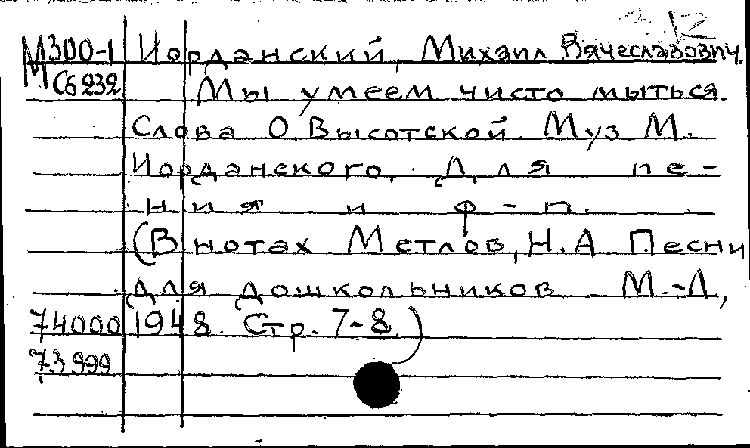 М300-1 Иорданский, Михаил Вячеславович.
М Сб232 Мы умеем чисто мыться.
Слова О Высотской. Муз М.
Иорданского. Для пе-
ния и ф-п.
(В нотах Метлов, Н.А Песни
для дошкольников М.-Л,
74000 1948. Стр. 7-8)
73999